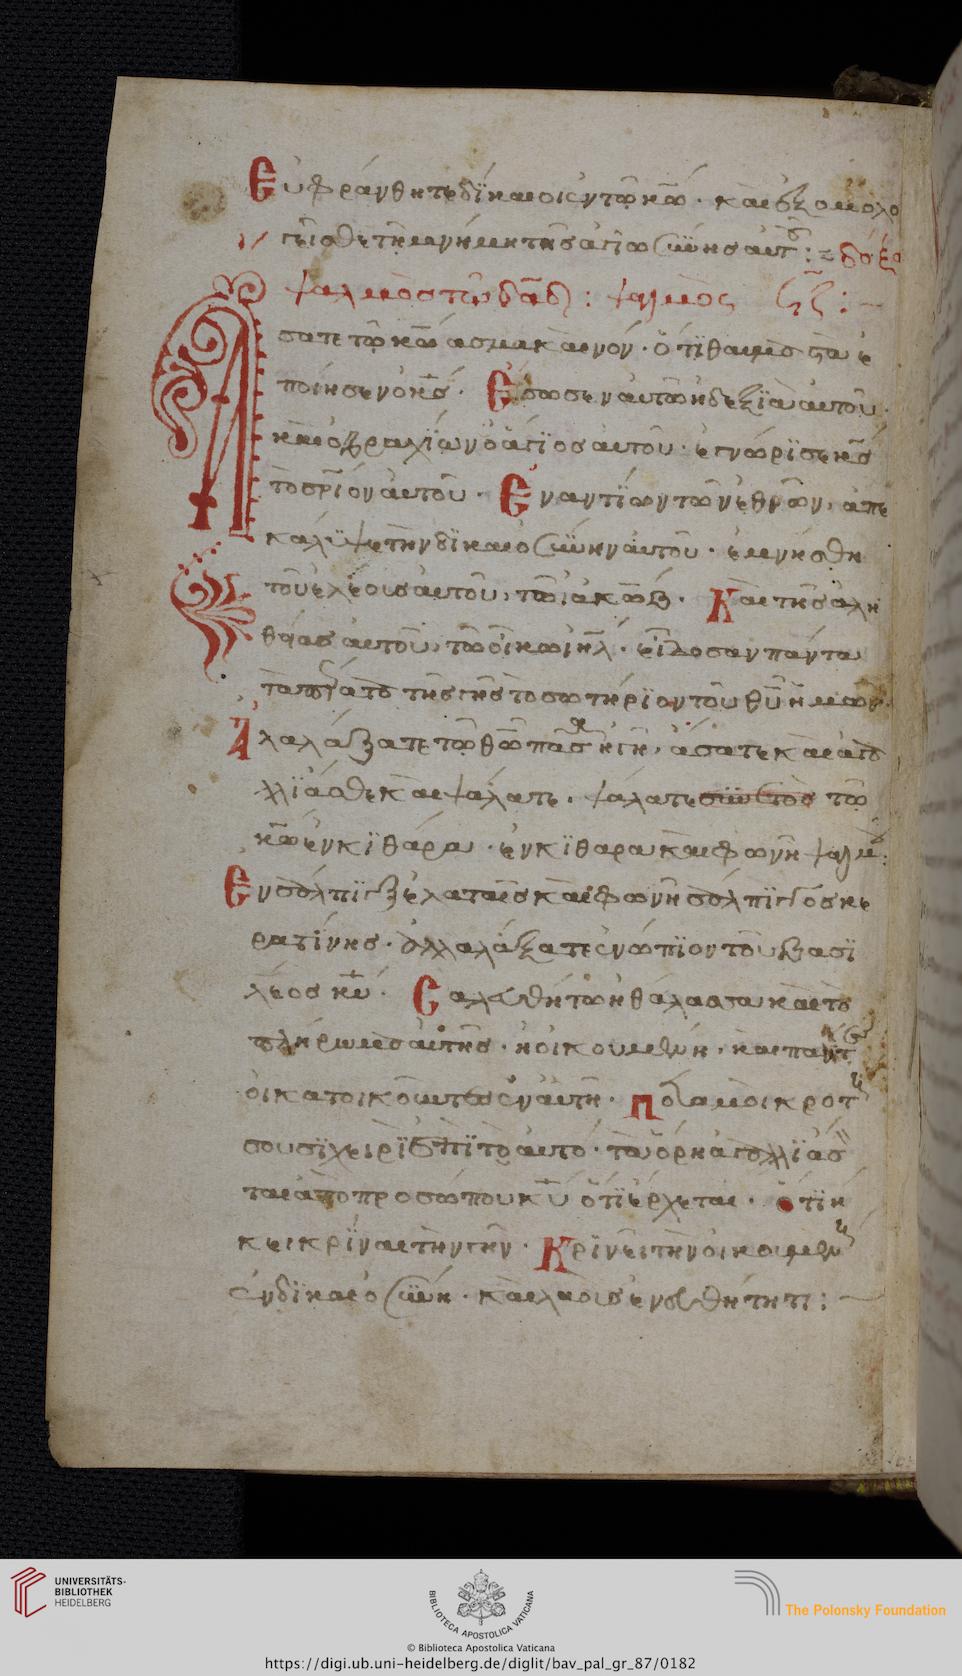 Εὐφράνθητε δίκαιοι ἐν τῶ κω̅ · καὶ ἐξομολο
γεῖσθε τῆ μνήμη τῆς ἁγιωσύνης αὐτοῦ : = δόξα
ψαλμὸς τῶ δα̅δ : ψαλμὸς ϟζ : –
Ἄσατε τῶ κω̅ ἄσμα καινόν · ὅτϊ θαυμαστὰ ἐ
ποίησεν ὁ κς̅ · Ἔσωσεν αὐτὸν ἡ δεξϊὰ αὐτοῦ ·
καὶ ὁ βραχίων ὁ ἅγϊος αὐτοῦ · ἐγνώρϊσε κς̅
τὸ σρ̅ιον αὐτοῦ · Ἐναντίων τῶν ἐθνῶν, ἀπε
κάλϋψε τὴν δϊκαιοσύνην αὐτοῦ · ἐμνήσθη
τοῦ ἐλέους αὐτοῦ, τῶ ἰακώβ · Καὶ τῆς ἀλη
θείας αὐτοῦ, τῶ οἴκω ιη̅λ · εἴδοσαν πάντα
τὰ πέρατα τῆς γῆς τὸ σωτήρϊον τοῦ θυ̅ ἡμῶν ·
Ἀλαλάξατε τῶ θω̅ πᾶσα ἡ γῆ, ἄσατε καὶ ἀγαλ
λϊάσθε καὶ ψάλατε · ψάλατε τῶ
κω̅ ἐν κϊθάρα · ἐν κϊθάρα καὶ φωνῆ ψαλμοῦ :
Ἐν σάλπϊγξιν ἐλαταῖς καὶ φωνῆ σάλπϊγγος κε
ρατίνης · ἀλλαλάξατε ἐνώπϊον τοῦ βασϊ
λέος κυ̅ · Σαλευθήτω ἡ θάλασσα καὶ τὸ
πλήρωμα αὐτῆς · ἡ οἰκουμένη, καὶ πάντες
οἱ κατοικοῦντες ἐν αὐτῆ · Ποταμοὶ κροτή
σουσϊ χειρὶ ἐπϊτοαυτό · τὰ ὄρη ἀγαλλϊάσον
ται ἀπὸ προσώπου κυ̅ ὅτϊ ἔρχεται · ὅτϊ ἥ
κει κρῖναι τὴν γῆν · Κρϊνεῖ τὴν οἰκουμένην
ἐν δϊκαιοσύνη · καὶ λαοὺς ἐν εὐθήτητι : –
UNIVERSITÄTS-
BIBLIOTHEK
HEIDELBERG
BIBLIOTECA APOSTOLICA VATICANA
© Biblioteca Apostolica Vaticana
The Polonsky Foundation
https://digi.ub.uni-heidelberg.de/diglit/bav_pal_gr_87/0182